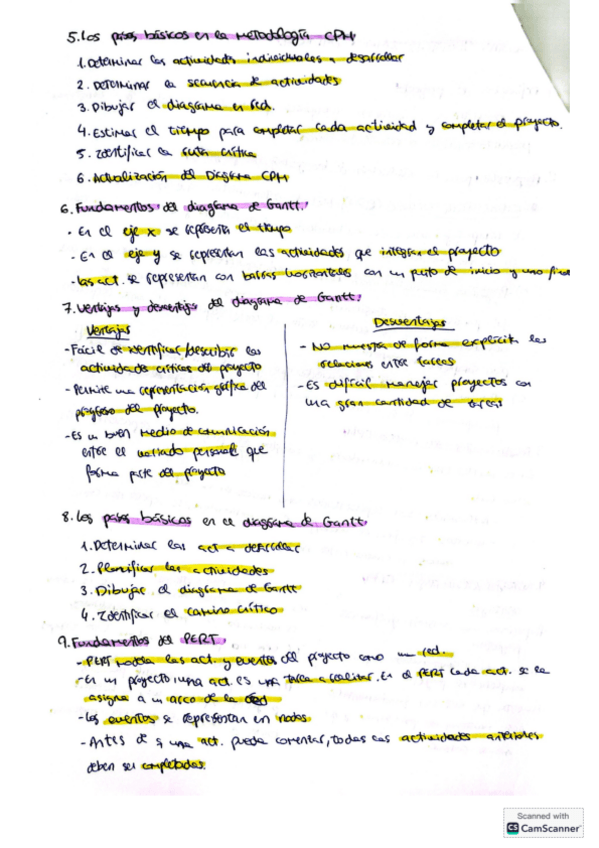 5. Los pasos básicos en la Metodología CPM
1. Determinar las actividades individuales a desarrollar
2. Determinar la secuencia de actividades
3. Dibujar el diagrama en red.
4. Estimar el tiempo para completar cada actividad y completar el proyecto.
5. Identificar la ruta crítica
6. Actualización del Diagrama CPM
6. Fundamentos del diagrama de Gantt.
· En el eje x se representa el tiempo
- En el eje y se representan las actividades que integran el proyecto
- las act. se representan con barras horizontales con un punto de inicio y uno final
7. Ventajas y desventajas del diagrama de Gantt.
Ventajas
- Fácil de identificar/describir las
actividades críticas del proyecto
- Permite una representación gráfica del
progreso del proyecto.
- Es un buen medio de comunicación
entre el variado personal que
forma parte del proyecto
Desventajas
- NO muestra de forma explícita las
relaciones entre tareas
- Es difícil manejar proyectos con
una gran cantidad de tareas
8. Los pasos básicos en el diagrama de Gantt
1. Determinar las act a desarrollar
2. Planificar las actividades
3. Dibujar el diagrama de Gantt
4. Identificar el camino crítico
9. Fundamentos del PERT.
- PERT modela las act. y eventos del proyecto como un red.
- En un proyecto, una act. es una tarea a realizar. En el PERT cada act. se la
asigna a un arco de la red
- Los eventos se representan en nodos.
- Antes de q una act. pueda comenzar, todas las actividades anteriores
deben ser completadas.
Scanned with
CS CamScanner